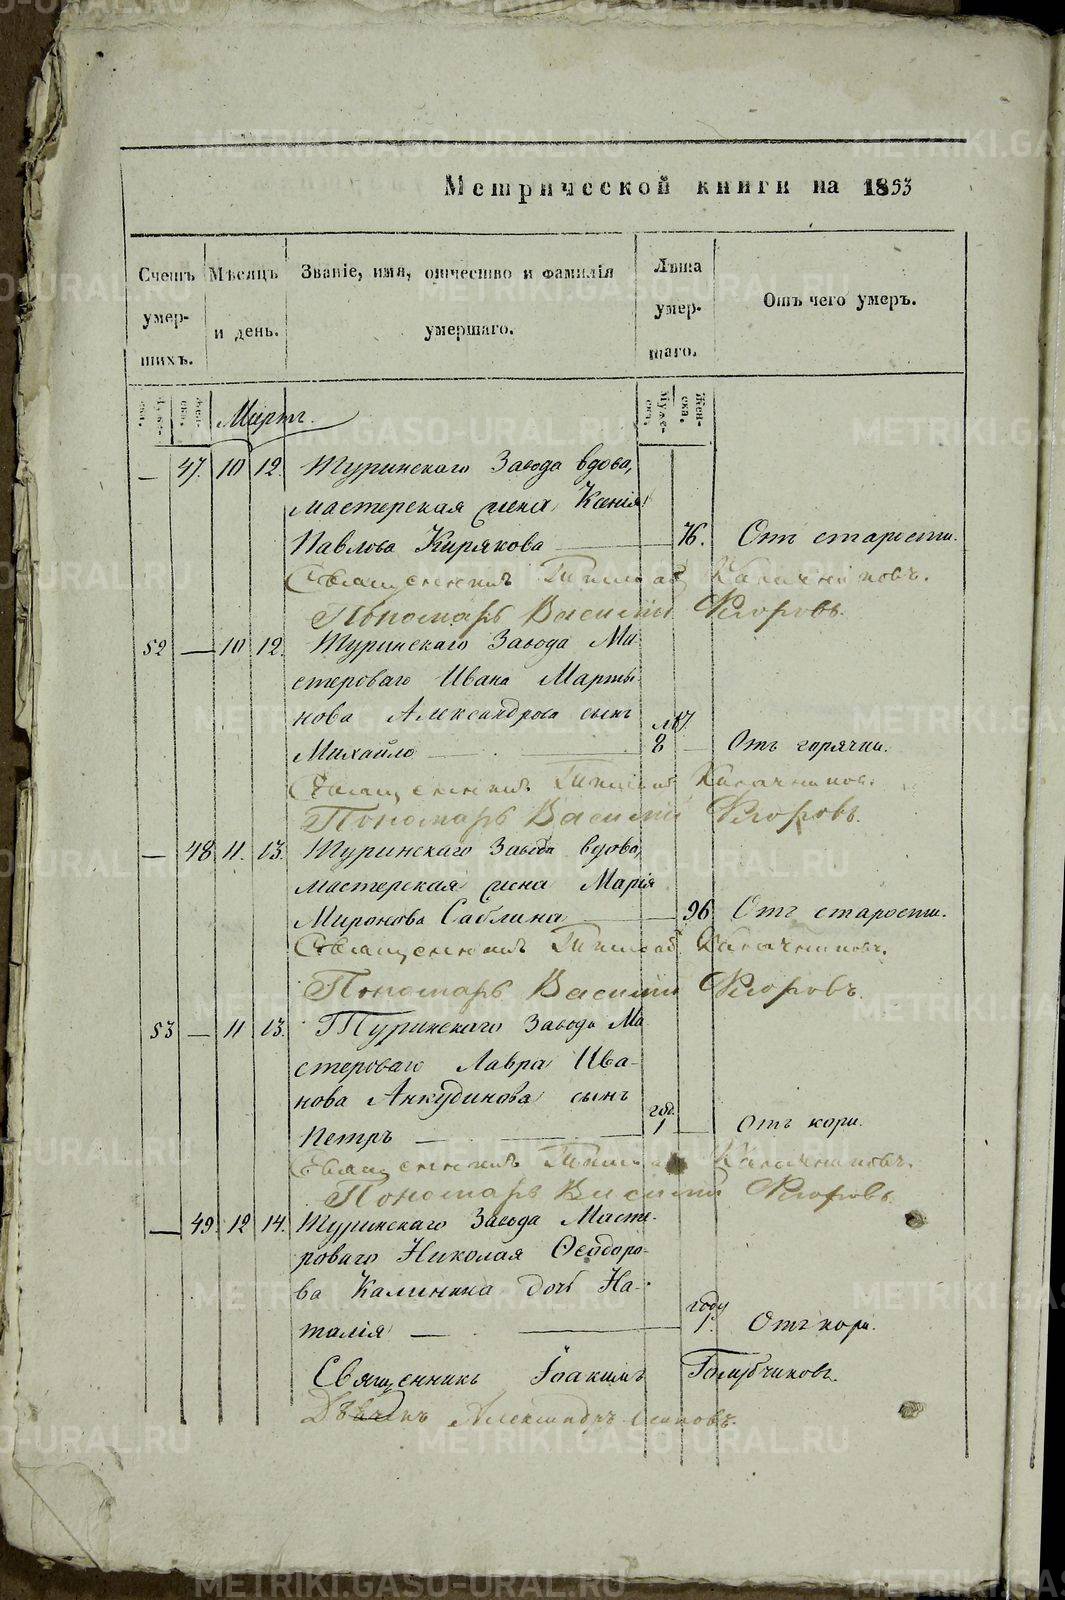 Метрической книги на 1853
Счетъ умер- шихъ.
Мѣсяцъ и день.
Званіе, имя, отчество и фамилія умершаго.
Лѣта умер- шаго.
Отъ чего умеръ.
Муже- ска. Жен- ска. Мартъ. Муже- ска. Жен- ска.
— 47. 10 12. Туринскаго Завода вдова,
мастерская жена Ксенія
Павлова Кирякова — 76. Отъ старости.
Священникъ Калачниковъ.
Пономарь Василій Флоровъ.
52 — 10 12. Туринскаго Завода Ма-
стероваго Ивана Марты-
нова Александрова сынъ
Михайло — 8 — Отъ горячки.
Священникъ Калачниковъ.
Пономарь Василій Флоровъ.
— 48 11. 13. Туринскаго Завода вдова,
мастерская жена Марія
Миронова Саблина — 96 Отъ старости.
Священникъ Калачниковъ.
Пономарь Василій Флоровъ.
53 — 11 13. Туринскаго Завода Ма-
стероваго Лавра Ива-
нова Анкудинова сынъ
Петръ — год. 1 — Отъ кори.
Священникъ Калачниковъ.
Пономарь Василій Флоровъ.
— 49. 12 14. Туринскаго Завода Масте-
роваго Николая Ѳеодоро-
ва Калинина дочь На-
талія — году 1. Отъ кори.
Священникъ Іоакимъ Голубчиковъ.
Александръ Осиповъ.
METRIKI.GASO-URAL.RU